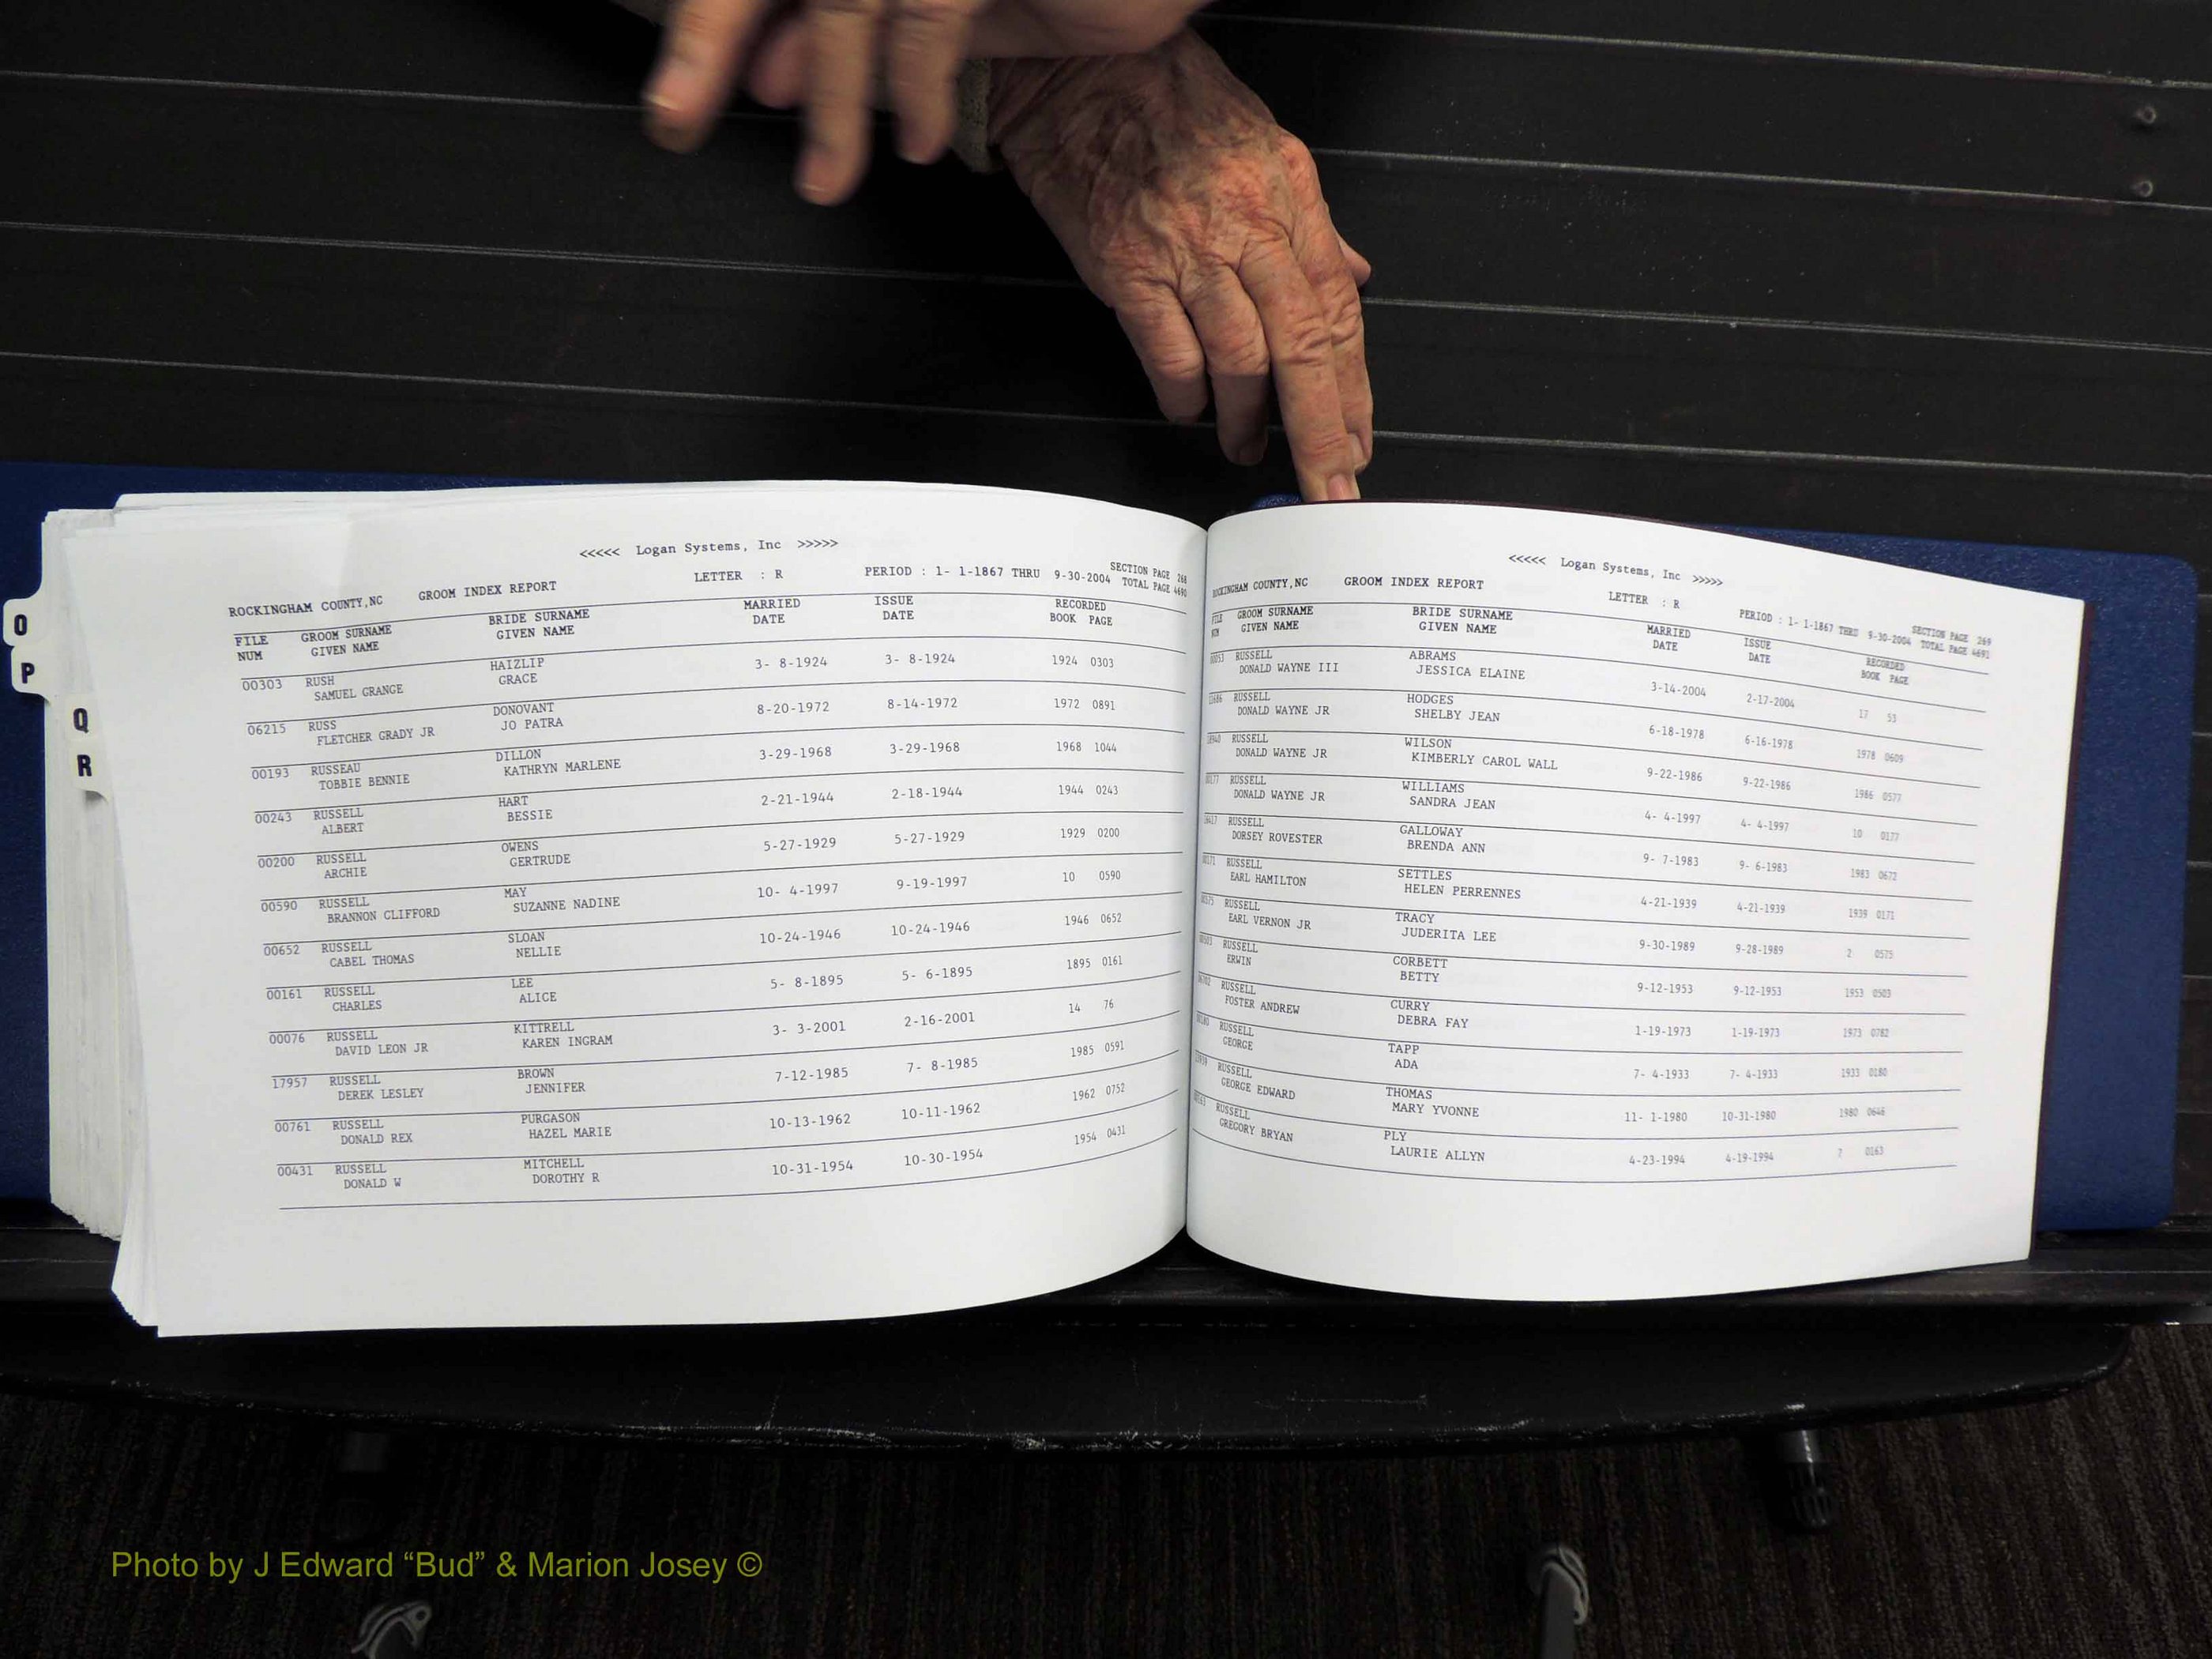 <<<<< Logan Systems, Inc >>>>>
ROCKINGHAM COUNTY,NC GROOM INDEX REPORT LETTER : R PERIOD : 1- 1-1867 THRU 9-30-2004 SECTION PAGE 268
TOTAL PAGE 4690
FILE GROOM SURNAME BRIDE SURNAME MARRIED ISSUE RECORDED
NUM GIVEN NAME GIVEN NAME DATE DATE BOOK PAGE
00303 RUSH HAIZLIP 3- 8-1924 3- 8-1924 1924 0303
SAMUEL GRANGE GRACE
06215 RUSS DONOVANT 8-20-1972 8-14-1972 1972 0891
FLETCHER GRADY JR JO PATRA
00193 RUSSEAU DILLON 3-29-1968 3-29-1968 1968 1044
TOBBIE BENNIE KATHRYN MARLENE
00243 RUSSELL HART 2-21-1944 2-18-1944 1944 0243
ALBERT BESSIE
00200 RUSSELL OWENS 5-27-1929 5-27-1929 1929 0200
ARCHIE GERTRUDE
00590 RUSSELL MAY 10- 4-1997 9-19-1997 10 0590
BRANNON CLIFFORD SUZANNE NADINE
00652 RUSSELL SLOAN 10-24-1946 10-24-1946 1946 0652
CABEL THOMAS NELLIE
00161 RUSSELL LEE 5- 8-1895 5- 6-1895 1895 0161
CHARLES ALICE
00076 RUSSELL KITTRELL 3- 3-2001 2-16-2001 14 76
DAVID LEON JR KAREN INGRAM
17957 RUSSELL BROWN 7-12-1985 7- 8-1985 1985 0591
DEREK LESLEY JENNIFER
00761 RUSSELL PURGASON 10-13-1962 10-11-1962 1962 0752
DONALD REX HAZEL MARIE
00431 RUSSELL MITCHELL 10-31-1954 10-30-1954 1954 0431
DONALD W DOROTHY R
<<<<< Logan Systems, Inc >>>>>
ROCKINGHAM COUNTY,NC GROOM INDEX REPORT LETTER : R PERIOD : 1- 1-1867 THRU 9-30-2004 SECTION PAGE 269
TOTAL PAGE 4691
FILE GROOM SURNAME BRIDE SURNAME MARRIED ISSUE RECORDED
NUM GIVEN NAME GIVEN NAME DATE DATE BOOK PAGE
00053 RUSSELL ABRAMS 3-14-2004 2-17-2004 17 53
DONALD WAYNE III JESSICA ELAINE
RUSSELL HODGES 6-18-1978 6-16-1978 1978 0609
DONALD WAYNE JR SHELBY JEAN
RUSSELL WILSON 9-22-1986 9-22-1986 1986 0577
DONALD WAYNE JR KIMBERLY CAROL WALL
00177 RUSSELL WILLIAMS 4- 4-1997 4- 4-1997 10 0177
DONALD WAYNE JR SANDRA JEAN
RUSSELL GALLOWAY 9- 7-1983 9- 6-1983 1983 0672
DORSEY ROVESTER BRENDA ANN
00171 RUSSELL SETTLES 4-21-1939 4-21-1939 1939 0171
EARL HAMILTON HELEN PERRENNES
00575 RUSSELL TRACY 9-30-1989 9-28-1989 2 0575
EARL VERNON JR JUDERITA LEE
00503 RUSSELL CORBETT 9-12-1953 9-12-1953 1953 0503
ERWIN BETTY
RUSSELL CURRY 1-19-1973 1-19-1973 1973 0782
FOSTER ANDREW DEBRA FAY
00180 RUSSELL TAPP 7- 4-1933 7- 4-1933 1933 0180
GEORGE ADA
RUSSELL THOMAS 11- 1-1980 10-31-1980 1980 0646
GEORGE EDWARD MARY YVONNE
00163 RUSSELL PLY 4-23-1994 4-19-1994 7 0163
GREGORY BRYAN LAURIE ALLYN
O
P
Q
R
Photo by J Edward “Bud” & Marion Josey ©